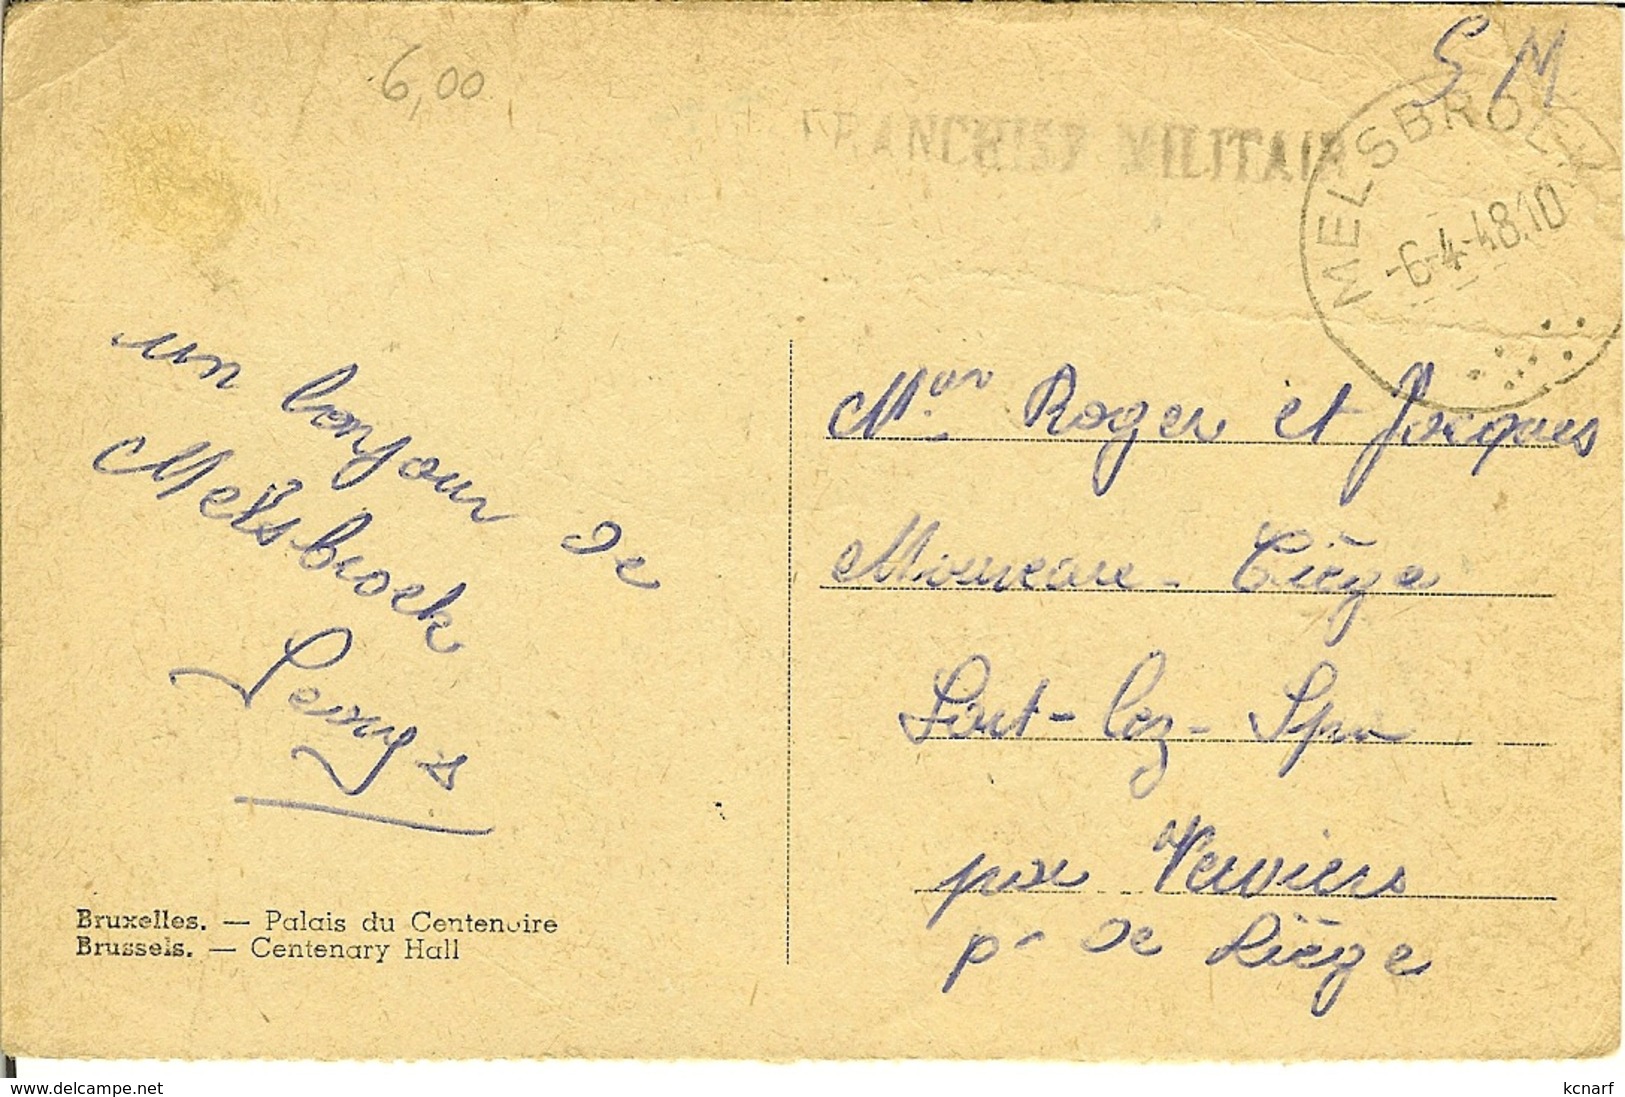 S M
6,00
FRANCHISE MILITAIR
MELSBROEK
-6-4-48.10
un bonjour de
Melsbroek
Mrs Roger et Jacques
Liège
Sart-lez-Spa
par Verviers
pr de Liège
Bruxelles. — Palais du Centenaire
Brussels. — Centenary Hall
www.delcampe.net
kcnarf